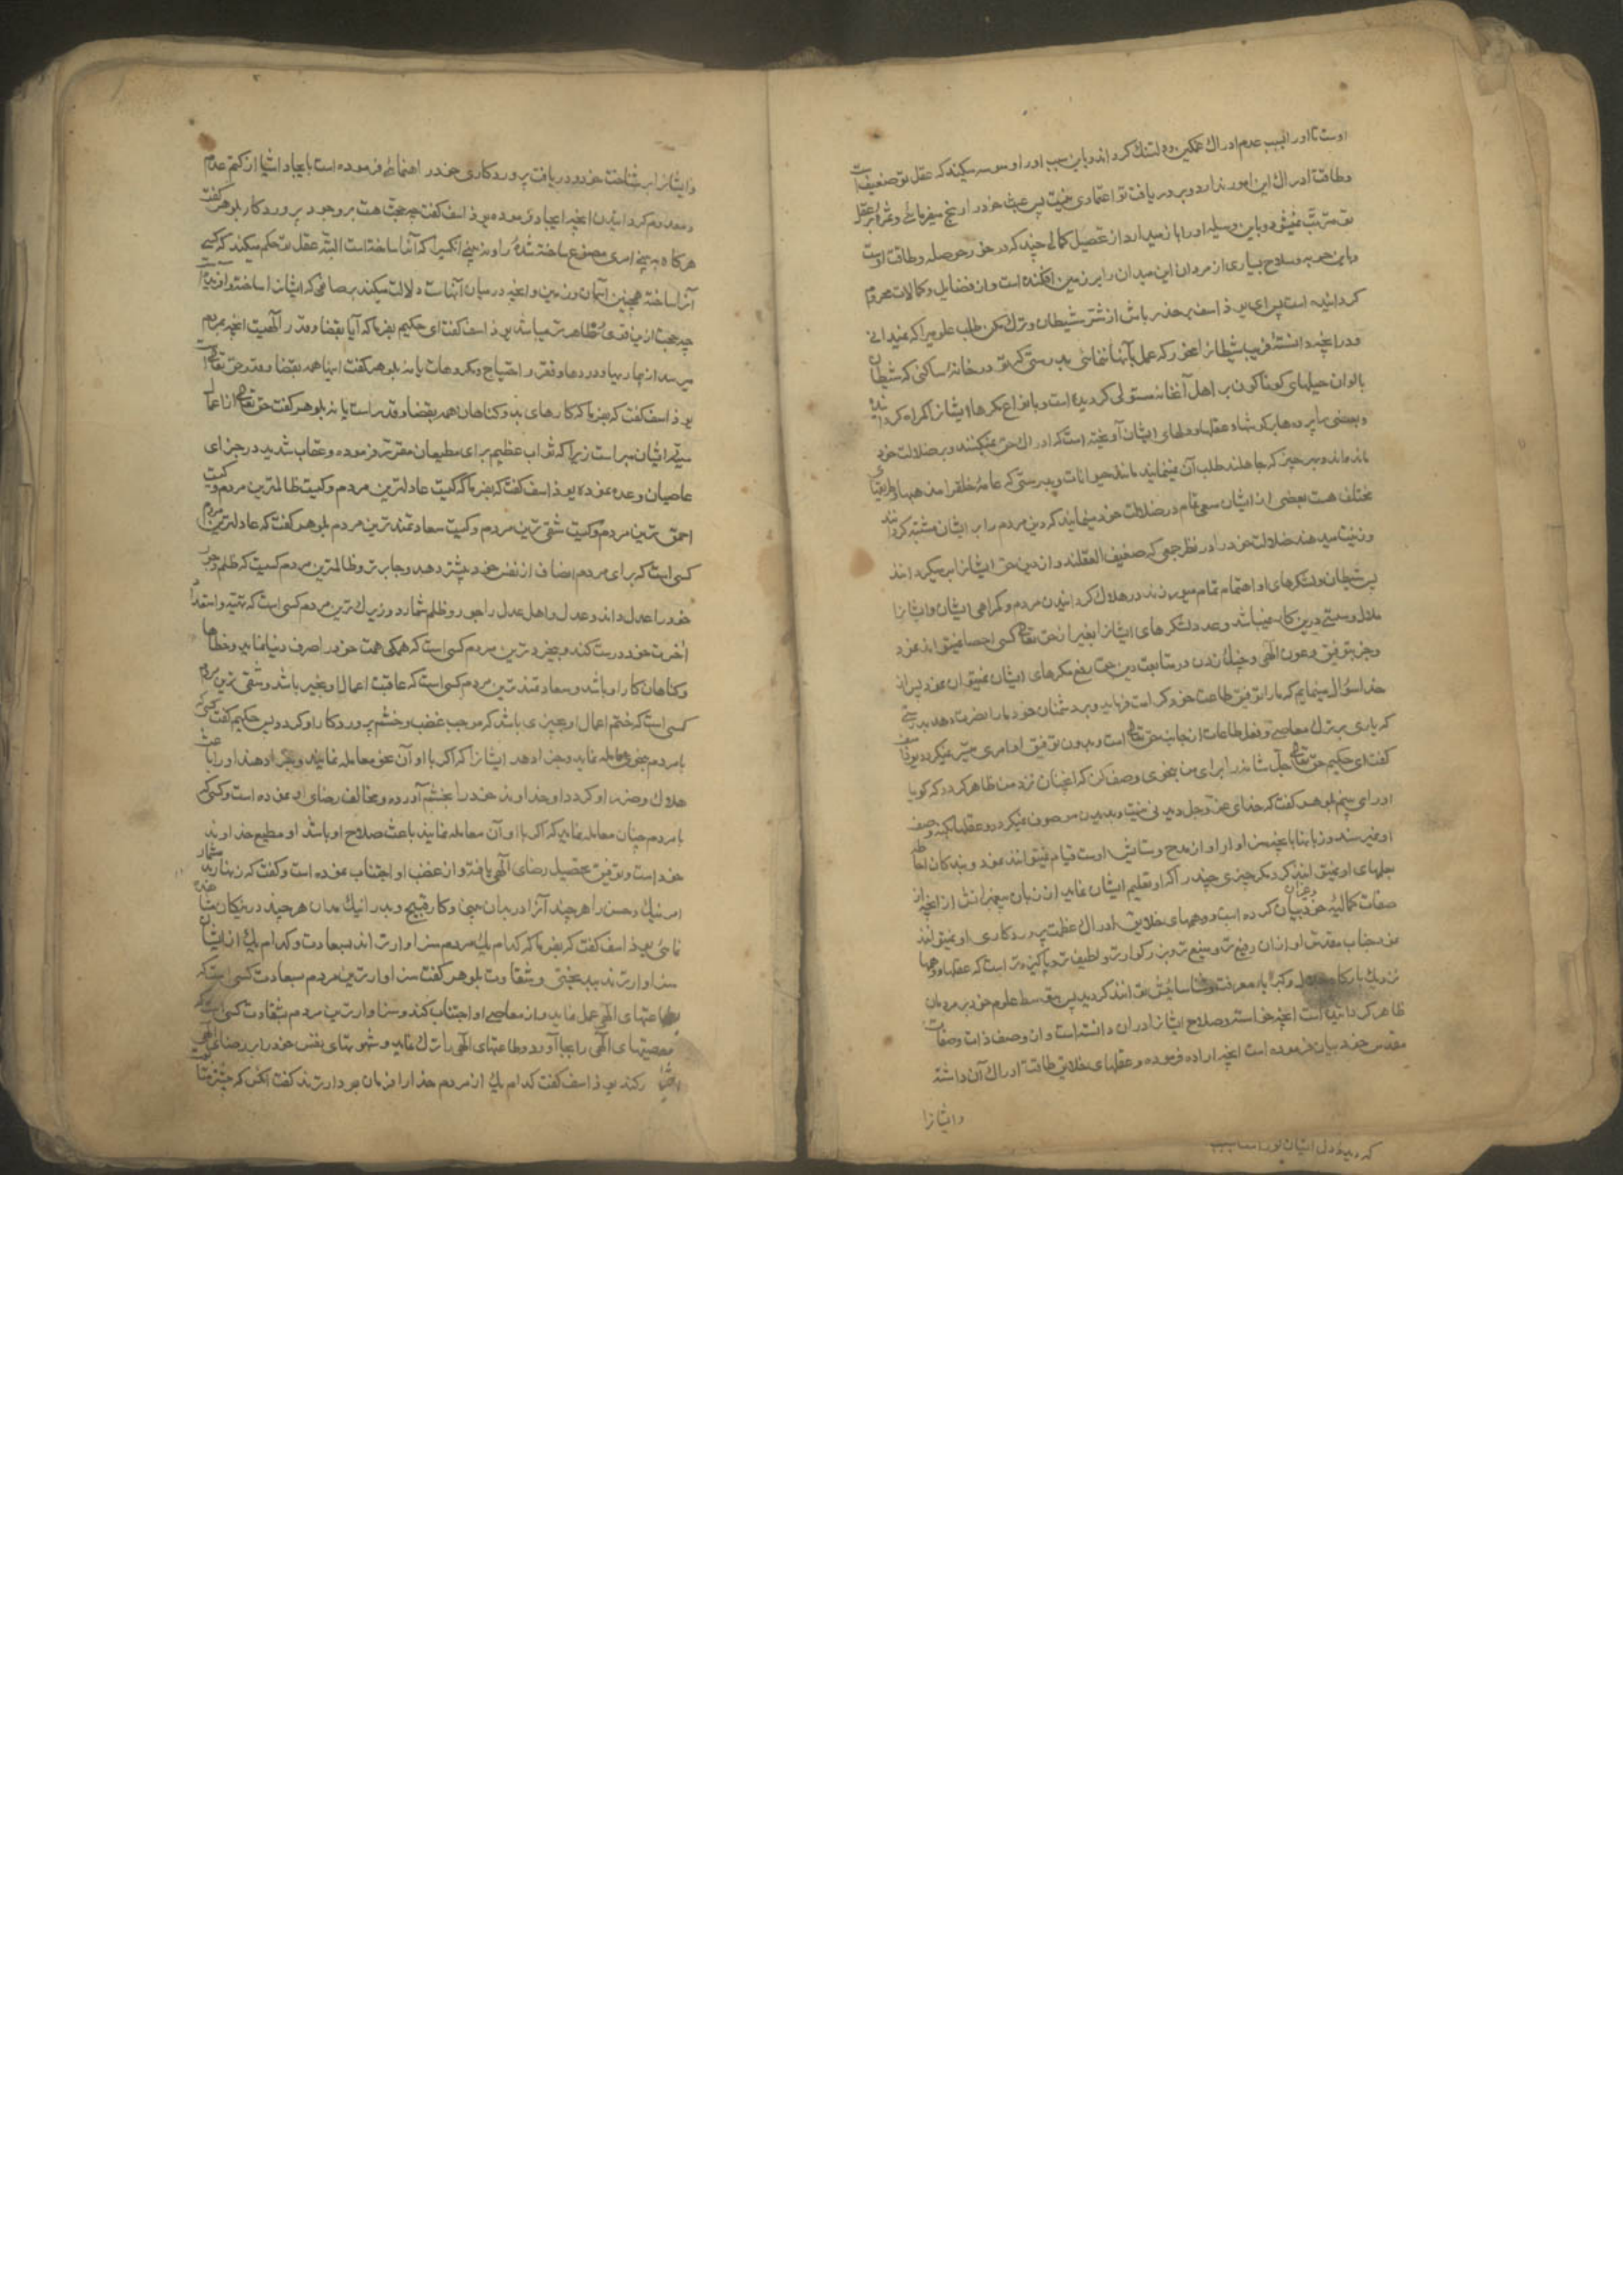 اوست تا او را بسبب عدم ادراك غمكین و دلتنك كرداند و باین سبب او را وسوسه میكند كه عقل تو ضعیفست
و طاقت ادراك این امور ندارد و برو دریافت تو اعتمادی نیست پس عبث خود را رنج میفرمائی و ثمرهٔ بر عقل
تو مترتب نمیشود و باین وسیله او را باز میدارد از تحصیل كمالی چند كه در خور حوصله و طاقت اوست
و باین حربه و سلاح بسیاری از مردان این میدان را بر زمین افكنده است و از فضایل و كمالات محروم
كردانیده است پس ای یوذاسف بر حذر باش از شر شیطان و ترك مكن طلب علومی را كه نمیدانی
و در انچه دانستهٔ فریب شیطان را مخور كه عمل بآنها ننمائی بدرستی كه تو در خانهٔ ساكنی كه شیطان
بالوان حیلهای كوناكون بر اهل آنخانه مستولی كردیده است و بانواع مكرها ایشان را كمراه كردانیده
و بعضی را پرده ها بر كوشها و عقلها و دلهای ایشان آویخته است كه ادراك حق نمیكنند و بر ضلالت خود
مانده اند و هر چیز كه جاهلند طلب آن نمینمایند مانند حیوانات و بدرستی كه عامهٔ خلق را مذهبها و طریقهای
مختلف هست بعضی از ایشان سعی تمام در ضلالت خود مینمایند كه دین مردم را بر ایشان مشتبه كردانند
و زینت میدهند ضلالت خود را در نظر جمعی كه ضعیف العقلند و از دین حق ایشان را بر میكردانند
پس شیطان و لشكرهای او اهتمام تمام میورزند در هلاك كردانیدن مردم و كمراهی ایشان و ایشان را
ملال و سستی درین كار نمیباشد و عدد لشكرهای ایشان را بغیر از حق تعالی كسی احصا نمیتواند نمود
و جز بتوفیق و عون الهی و چنك زدن در متابعت دین حق دفع مكرهای ایشان نمیتوان نمود پس از
خدا سؤال مینمایم كه ما را توفیق طاعت خود كرامت فرماید و بر دشمنان خود ما را نصرت دهد بدرستی
كه یاری بر ترك معاصی و فعل طاعات از جانب حق تعالی است و بدون توفیق او امری میسر نمیكردد یوذاسف
كفت ای حكیم حق تعالی جل شانه را برای من بنحوی وصف كن كه انچنان نزد من ظاهر كردد كه كویا
او را می بینم بلوهر كفت كه خدای عز و جل دیدنی نیست و بدیدن موصوف نمیكردد و عقلها بكنه وصف
او نمیرسند و زبانها بانچه سزاوار او از مدح و ستایش اوست قیام نمیتوانند نمود و بندكان احاطه
بعلمهای او نمیتوانند كرد مكر چیزی چند را كه او تعلیم ایشان نماید از زبان پیغمبرانش از انچه از
صفات كمالیهٔ خود بیان كرده است و وهمهای خلایق ادراك عظمت پروردكاری او نمیتوانند
نمود جناب مقدس او از ان رفیع تر و منیع تر و بزركوارتر و لطیف تر و پاكیزه تر است كه عقلها و وهمها
نزدیك باركاه جلال و كبریا معرفت و شناسائیش توانند كردید پس بتوسط علوم خود بر مردمان
ظاهر كردانیده است انچه خواسته و صلاح ایشان را در ان دانسته است و از وصف ذات و صفات
مقدس خود بیان فرموده است انچه اراده فرموده و عقلهای خلایق طاقت ادراك آن داشته
و ایشان را
و ایشان را بر شناخت خود و دریافت پروردكاری خود راهنمائی فرموده است بایجاد اشیا از كتم عدم
و معدوم كردانیدن انچه ایجاد نموده یوذاسف كفت چه حجت هست بر وجود پروردكار بلوهر كفت
هر كاه به بینی امری مصنوع ساخته شدهٔ را و نه بینی انكس را كه آنرا ساخته است البته عقل تو حكم میكند كه كسی
آنرا ساخته همچنین آسمان و زمین و انچه در میان آنهاست دلالت میكند بر صانعی كه ایشان را ساخته و افریده است
چه حجت ازین قوی و ظاهر تر میباشد یوذاسف كفت ای حكیم بفرما كه آیا بقضا و قدر الهیست انچه بمردم
میرسد از بیماریها و دردها و فقر و احتیاج و مكروهات یا نه بلوهر كفت اینها همه بقضا و قدر حق تعالی است
یوذاسف كفت كه بفرما كه كارهای بد و كناهان همه بقضا و قدر است یا نه بلوهر كفت حق تعالی از اعمال
سیئه ایشان مبراست زیرا كه ثواب عظیم برای مطیعان مقرر فرموده و عقاب شدید در جزای
عاصیان وعده نموده یوذاسف كفت كه بفرما كه كیست عادلترین مردم و كیست ظالمترین مردم و كیست
احمق ترین مردم و كیست شقی ترین مردم و كیست سعادتمند ترین مردم بلوهر كفت كه عادلترین مردم
كسی است كه برای مردم انصاف از نفس خود بیشتر دهد و جابر تر و ظالمترین مردم كسیست كه ظلم و جور
خود را عدل داند و عدل و اهل عدل را جور و ظلم شمارد و زیرك ترین مردم كسی است كه تهیه و استعداد
آخرت خود درست كند و بیخرد ترین مردم كسی است كه همكی همت خود را صرف دنیا نماید و خطاها
و كناهان كار او باشد و سعادتمند ترین مردم كسی است كه عاقبت اعمال او بخیر باشد و شقی ترین مردم
كسی است كه ختم اعمال او بچیزی باشد كه موجب غضب و خشم پروردكار او كردد پس حكیم كفت كسی كه
با مردم بنحوی معامله نماید و جزا دهد ایشان را كه اكر با او آن نحو معامله نمایند و جزا دهند او را باعث
هلاك و ضرر او كردد او خداوند خود را بخشم آورده و مخالف رضای او نموده است و كسی كه
با مردم چنان معامله نماید كه اكر با او آن معامله نمایند باعث صلاح او باشد او مطیع خداوند
خود است و توفیق تحصیل رضای الهی یافته و از غضب او اجتناب نموده است و كفت كه زنهار بد مشمار
امر نیك و حسن را هر چند آنرا در بدان بینی و كار قبیح و بد را نیك مدان هر چند در نیكان مشاهده
نمائی یوذاسف كفت كه بفرما كه كدام یك از مردم سزاوارتر اند بسعادت و كدام یك از ایشان
سزاوارترند ببد بختی و شقاوت بلوهر كفت سزاوارترین مردم بسعادت كسی است كه
بطاعتهای الهی عمل نماید و از معاصی او اجتناب كند و سزاوارترین مردم بشقاوت كسی است كه
معصیتهای الهی را بجا آورد و طاعتهای الهی را ترك نماید و شهوتهای نفس خود را بر رضای الهی
اختیار كند یوذاسف كفت كدام یك از مردم خدا را فرمان بردارترند كفت انكس كه بیشتر متابعت